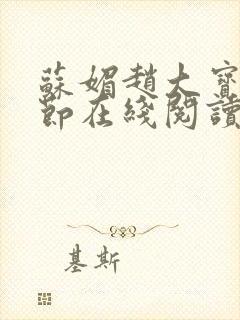 蘇媚趙大寶
節在綫閱讀
基斯